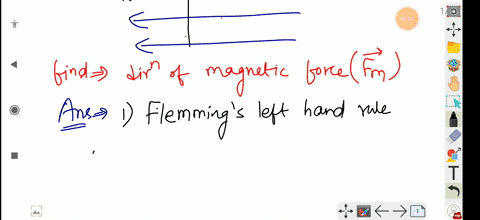 find⇒ dirⁿ of magnetic force (F⃗m)
Ans⇒ 1) Flemming's left hand rule
T
1